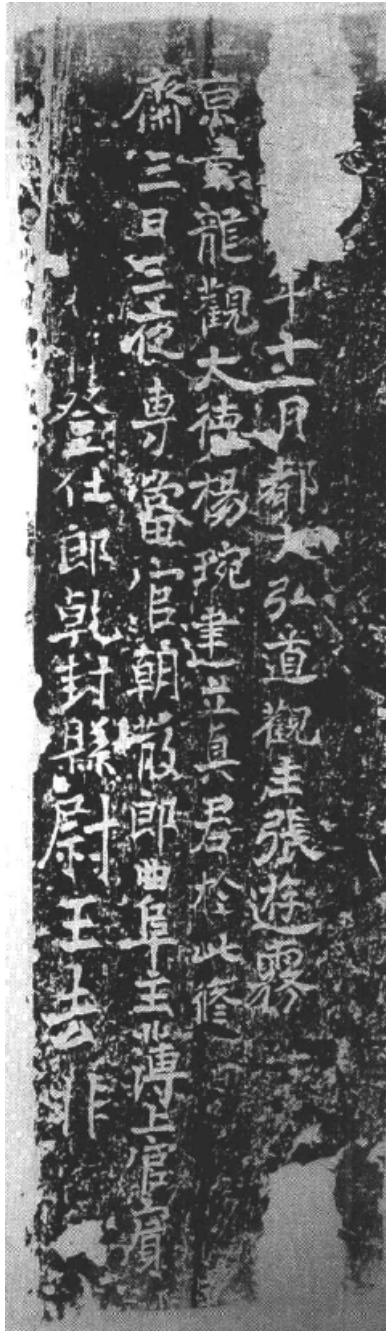 年十一月都大弘道觀主張遊霧
京景龍觀大德楊琬建立真君於此修
齋三日三夜專當官朝散郎曲阜主簿上官賓
登仕郎乾封縣尉王去非